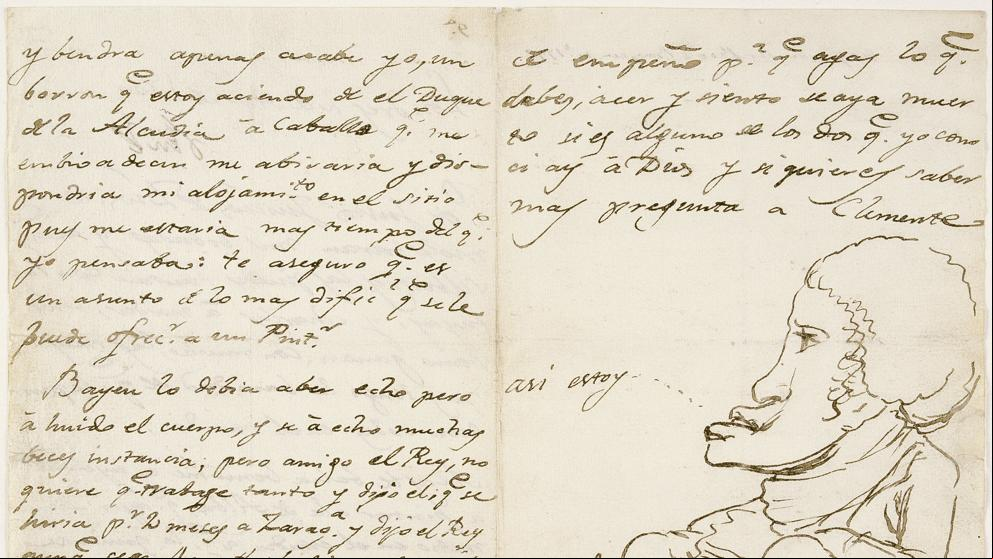 y bendra apenas acabe yo, un
borron q.e estoy aciendo de el Duque
de la Alcudia à Caballo q.e me
embio a decir me abisaria y dis-
pondria mi alojami.to en el sitio
pues me estaria mas tiempo del q.e
yo pensaba: te aseguro q.e es
un asunto de lo mas dific.l q.e se le
puede ofrec.r a un Pint.r
Bayeu lo debia aber echo pero
à huido el cuerpo, y se à echo muchas
beces instancia, pero amigo el Rey, no
quiere q.e trabage tanto y dijo el q.e se
hiria p.r 2 meses a Zarag.a y dijo el Rey
9.a
de empeño p.a q.e agas lo q.e
debes, acer y siento se aya muer
to si es alguno de los dos q.e yo cono
ci ay à Dios y si quieres saber
mas pregunta a Clemente
asi estoy